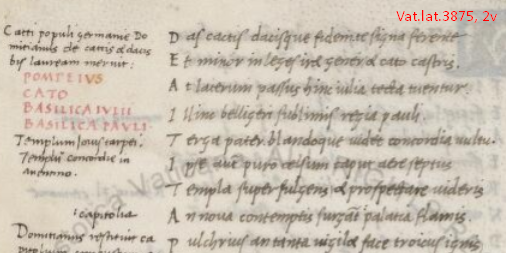 Vat.lat.3875, 2v
Catti populi germanie Do
mitianus de cattis & dacis
bis lauream meruit:
POMPEIVS
CATO
BASILICA IVLII
BASILICA PAVLI
Templum Iouis tarpei.
Templũ concordie in
auentino.
capitolia
Domitianus restituit ca
Das cattis dacisque fidem te signa ferente
Et minor in leges iret gener & cato castris.
At laterum passus hinc iulia tecta tuentur.
Illinc belligeri sublimis regia pauli.
Terga pater. blandoque uidet concordia uultu.
Ipse aut puro celsum caput aere septus
Templa superfulgens & prospectare uideris
An noua contemptis surgãt palatia flãmis.
Pulchrius an tanta uigilet face troicus ignis